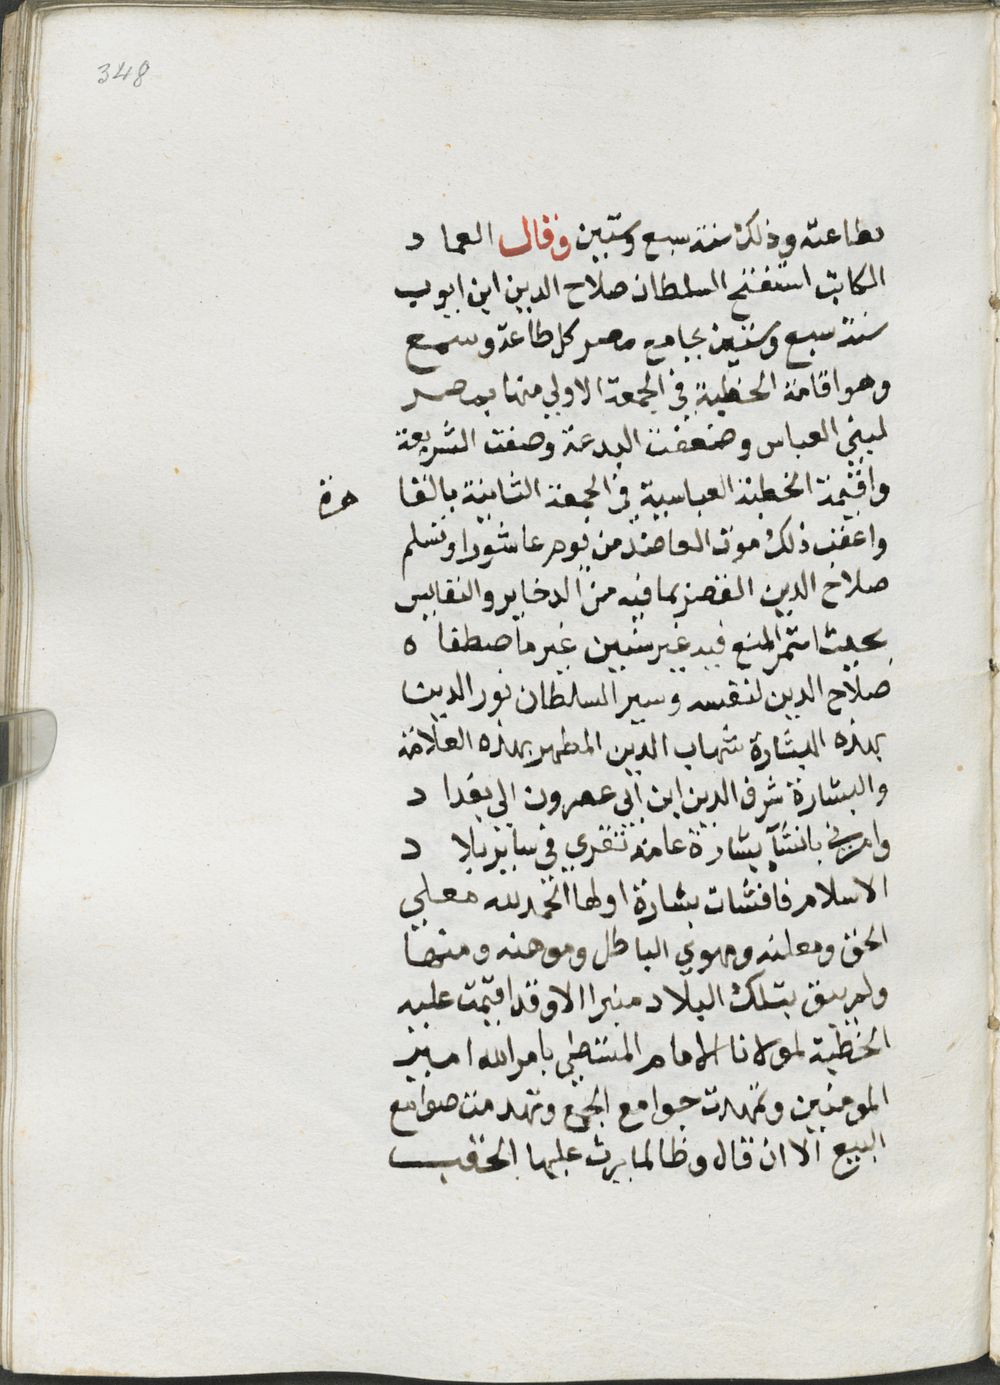 348
بطاعته وذلك سنة سبع وستين وقال العماد
الكاتب استفتح السلطان صلاح الدين ابن ايوب
سنة سبع وستين بجامع مصر كل طاعة وسمع
وهو اقامة الخطبة في الجمعة الاولي منها بمصر
لبني العباس وضعفت البدعة وصفت الشريعة
واقيمة الخطبة العباسية في الجمعة الثانية بالقا هرة
واعقب ذلك موت العاضد من يوم عاشورا وتسلم
صلاح الدين القصر بما فيه من الدخاير والنفايس
بحيث استمر البيع فيه عشر سنين غير ما اصطفاه
صلاح الدين لنفسه وسير السلطان نور الدين
بهذه البشارة شهاب الدين المطهر بهذه العلامة
والبشارة شرف الدين ابن ابي عصرون الي بغداد
وامرني بانشآ بشارة عامة تقري في ساير بلاد
الاسلام فانشات بشارة اولها الحمد لله معلي
الحق ومعلنه وموهي الباطل وموهنه ومنها
ولم يبق بتلك البلاد منبرا الا وقد اقيمت عليه
الخطبة لمولانا الامام المستضي بامر الله امير
المومنين وتمهدت جوامع الجمع وتهدمت صوامع
البيع الا ان قال وطالما مرت عليها الحقب